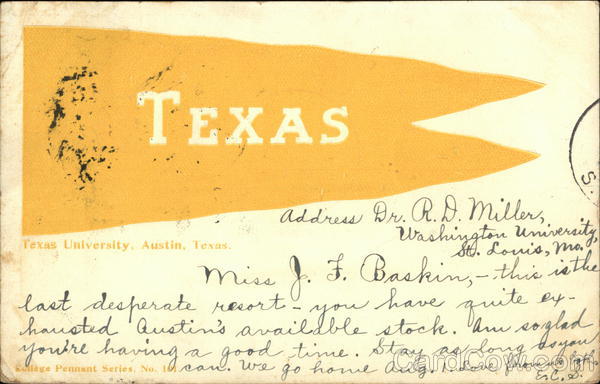 TEXAS
S.
Texas University, Austin, Texas.
Address Dr. R. D. Miller,
Washington University,
St. Louis, Mo.
Miss J. F. Baskin,- this is the
last desperate resort - you have quite ex-
hausted Austin's available stock. Am so glad
you're having a good time. Stay as long as you
can. We go home Aug. 1. Love
College Pennant Series, No. 101
E.C.S.
CardCow.com